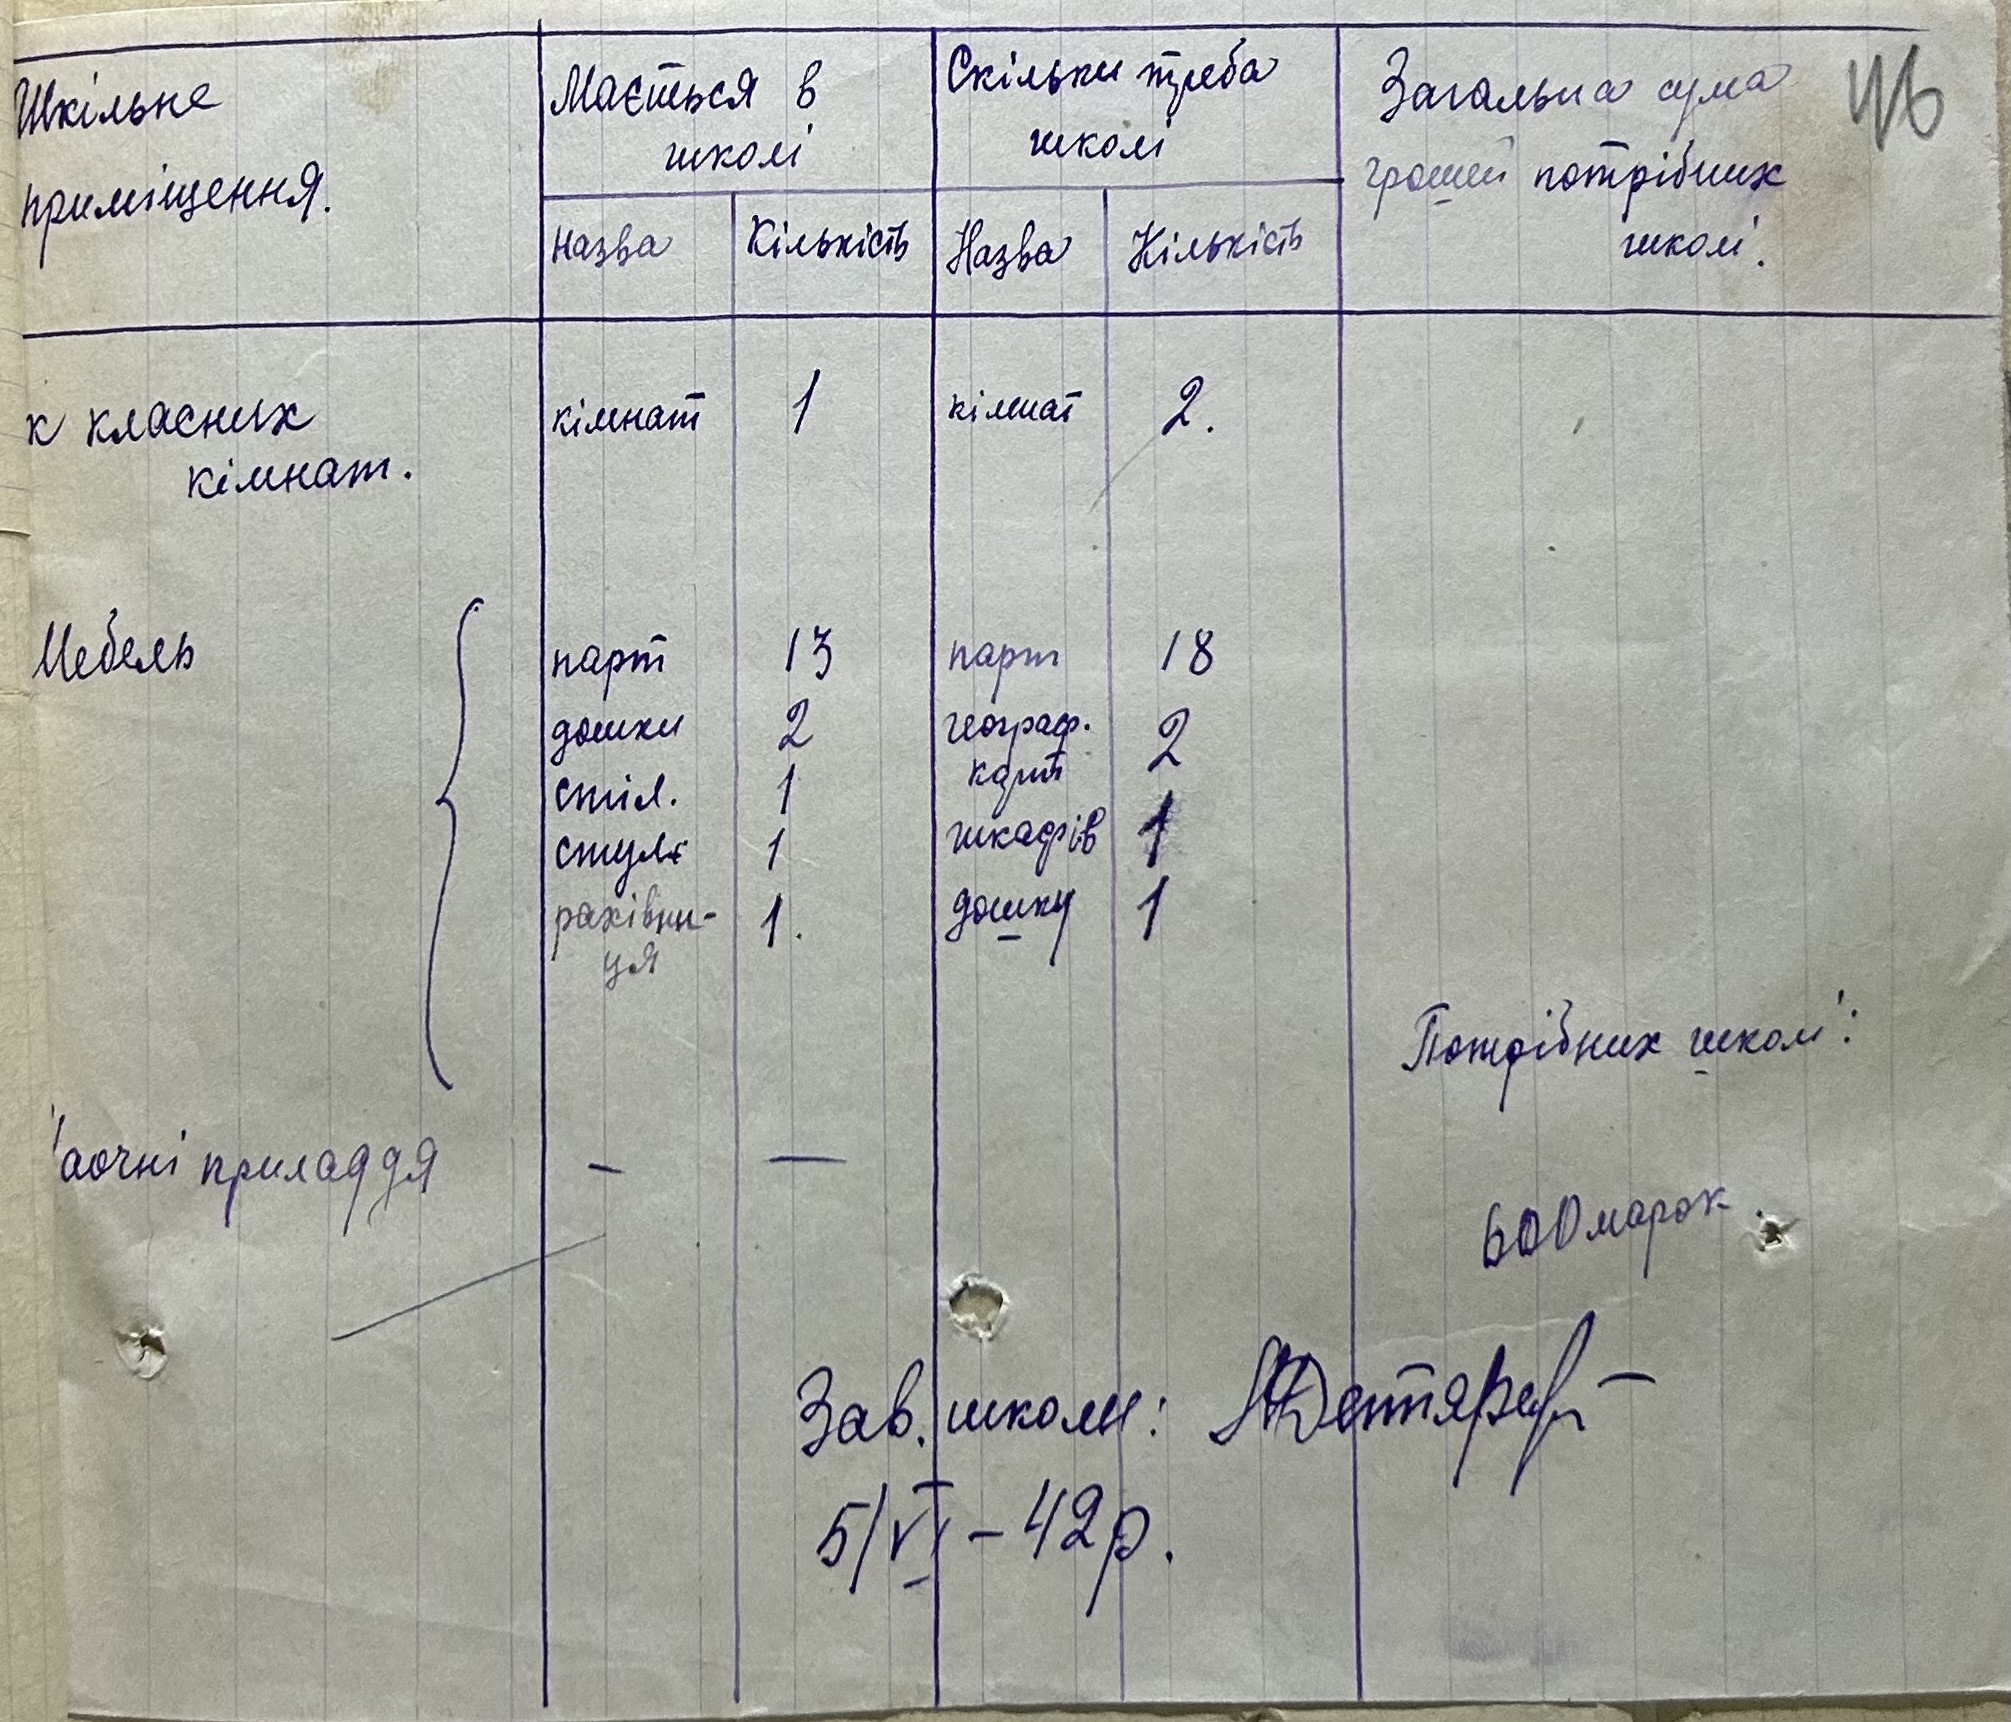 Шкільне
приміщення.
Мається в
школі
Скільки треба
школі
Загальна сума
грошей потрібних
школі.
46
назва Кількість Назва Кількість
к класних
кімнат.
кімнат 1 кімнат 2.
Мебель
парт 13 парт 18
дошки 2 географ.
карт 2
стіл. 1 шкафів 1
стуле 1 дошку 1
рахівни-
ця 1.
Потрібних школі:
аочні приладдя — —
600 марок.
Зав. школи:
5/VI – 42 р.